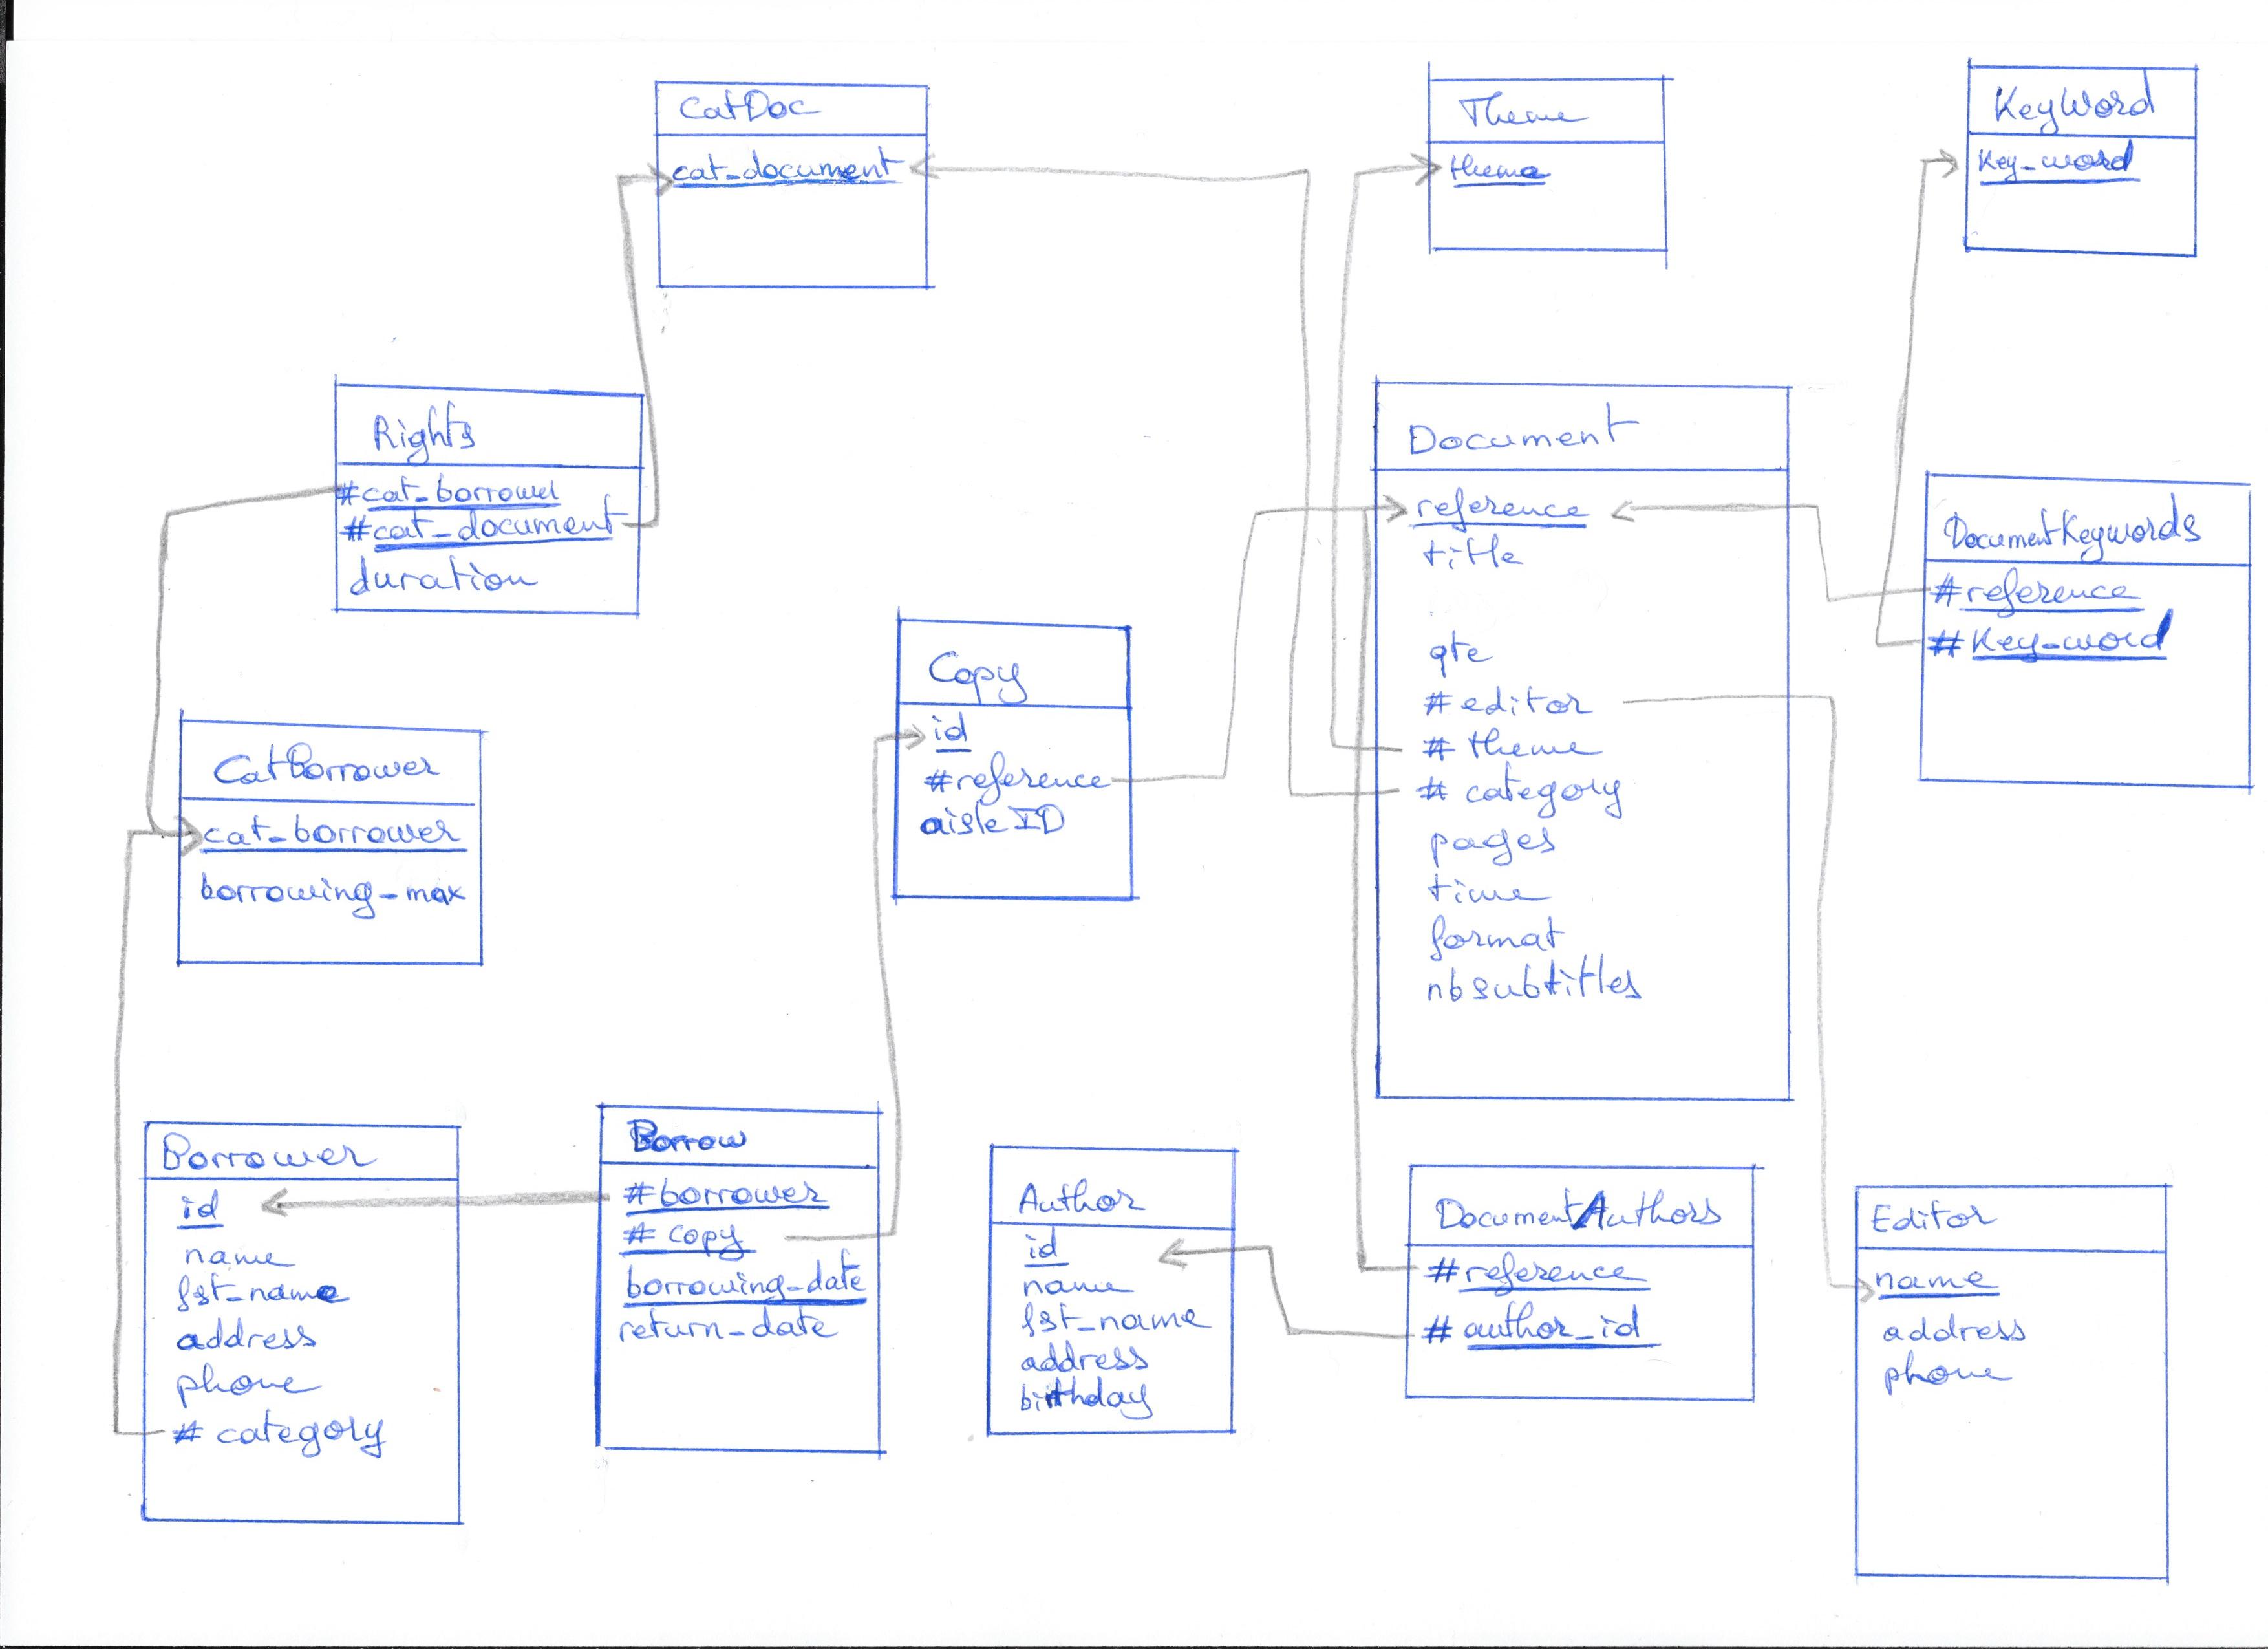 CatDoc
cat_document
Theme
theme
KeyWord
Key_word
Rights
#cat_borrower
#cat_document
duration
Document
reference
title
qte
#editor
# theme
# category
pages
time
format
nbsubtitles
DocumentKeywords
#reference
#Key_word
Copy
id
#reference
aisleID
CatBorrower
cat_borrower
borrowing_max
Borrower
id
name
fst_name
address
phone
# category
Borrow
#borrower
# copy
borrowing_date
return_date
Author
id
name
fst_name
address
birthday
DocumentAuthors
#reference
# author_id
Editor
name
address
phone